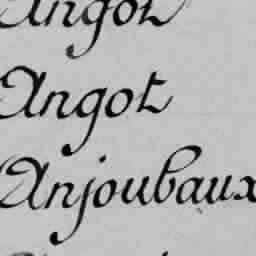 Angot
Angot
Anjoubaux